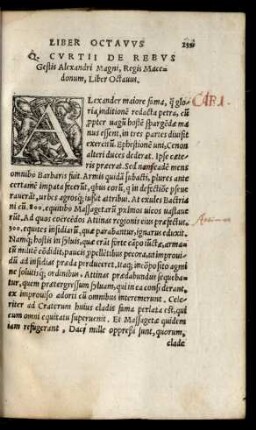 LIBER OCTAVVS
Q. CVRTII DE REBVS
Gestis Alexandri Magni, Regis Mace-
donum, Liber Octauus.
ALexander maiore fama, q̃ glo
ria, in ditionẽ redacta petra, cũ
ꝓpter uagũ hostẽ spargẽdæ ma
nus essent, in tres partes diuisit
exercitũ. Ephestionẽ uni, Cenon
alteri duces dederat. Ipse cæte-
ris præerat. Sed nõ eadẽ mens
omnibus Barbaris fuit. Armis quidã subacti, plures ante
certamẽ imperata fecerũt,
uerãt, urbes agrosq́; iussit attribui. At exules Bactria
ni cũ equitibus Massagetarũ proximos uicos uastaue
rũt. Ad quos coercẽdos Attinas regionis eius præfectus,
equites insidiarũ, quæ parabantur, ignarus eduxit.
Namq́; hostis in syluis, quæ erãt forte cãpo iũctæ, arma-
tũ militẽ cõdidit, paucis ꝓpellẽtibus pecora,
dũ ad insidias præda perduceret, itaq́; incõposito agmi
ne solutisq́; ordinibus Attinas prædabundus sequeba-
tur, quem prætergressum syluam, qui in ea consederant,
ex improuiso adorti cũ omnibus interemerunt. Cele-
riter ad Craterum huius cladis fama perlata est, qui
cum omni equitatu superuenit. Et Massagetæ quidem
iam refugerant, Dacæ mille oppressi sunt, quorum
clade